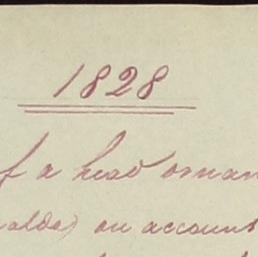 1828
f a head ornam
alda) on account